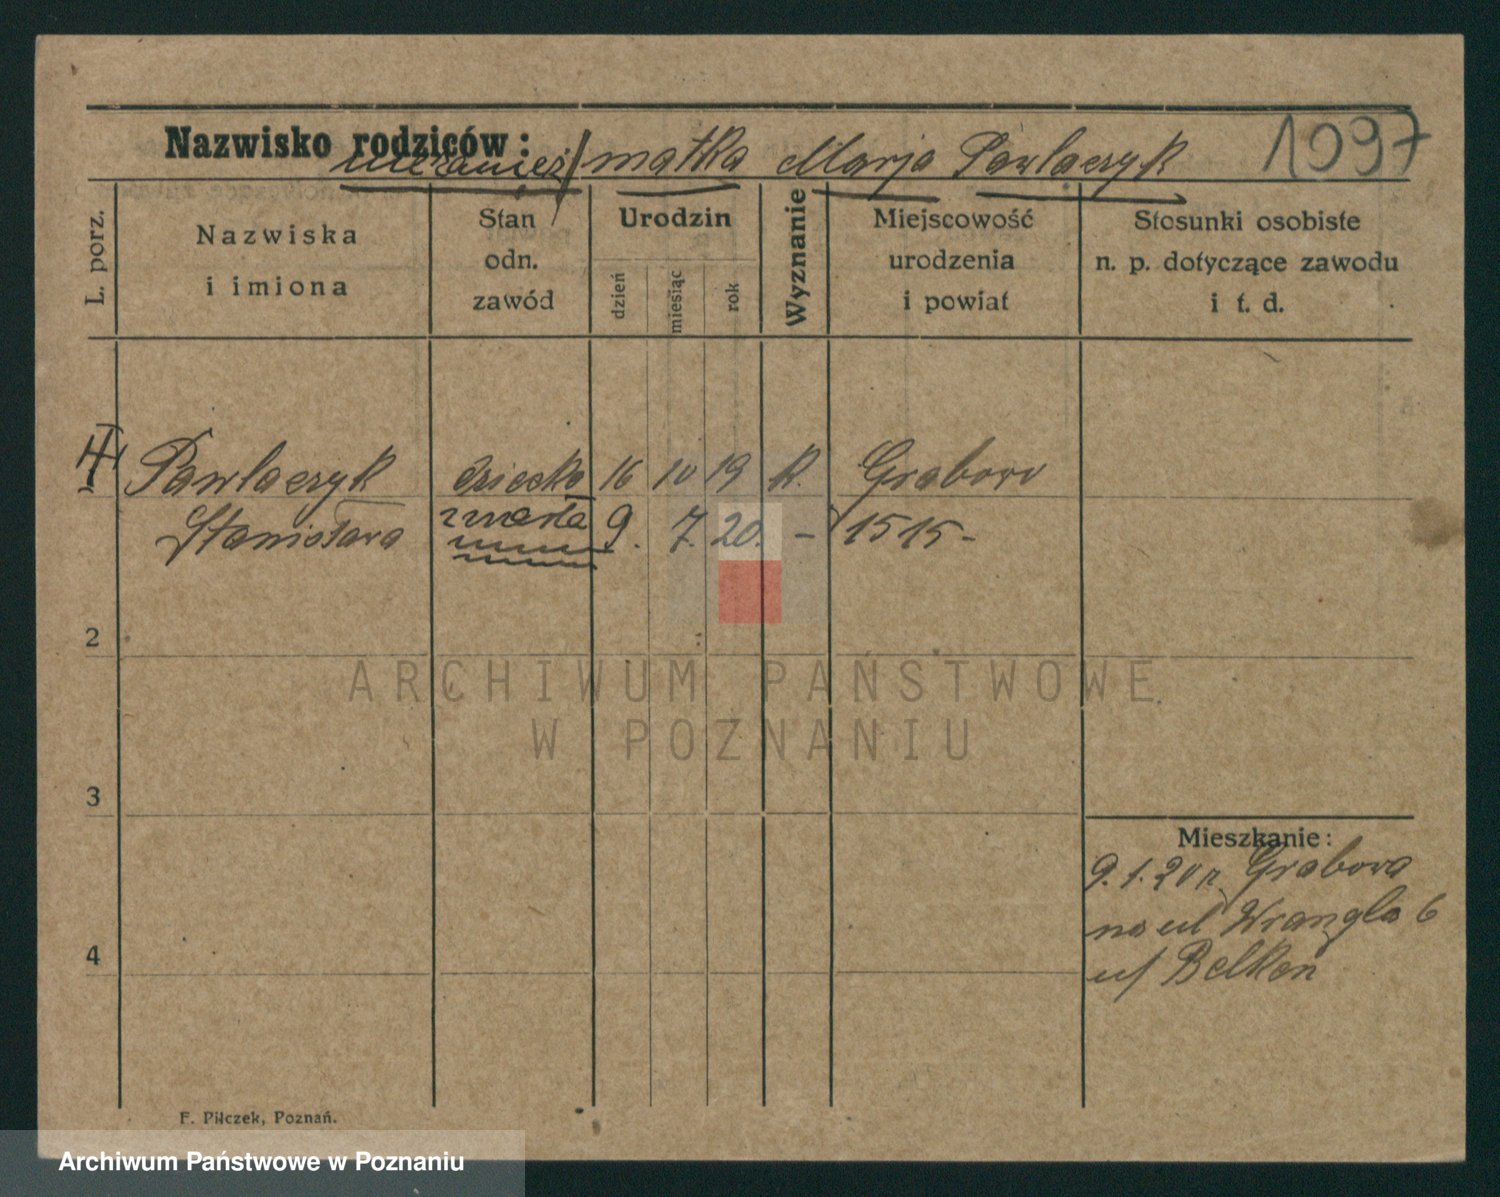 1097
Nazwisko rodziców: matka Marja Pawlaczyk
L. porz.
Nazwiska
i imiona
Stan
odn.
zawód
Urodzin
dzień
miesiąc
rok
Wyznanie
Miejscowość
urodzenia
i powiat
Stosunki osobiste
n. p. dotyczące zawodu
i t. d.
Pawlaczyk dziecko 16 10 19 k. Grabowo
Stanisława zmarła 9. 7. 20. - 1515-
2
3
4
Mieszkanie:
9.1.20 r. Grabowa
na ul Wrangla 6
u/ Belken
F. Piłczek, Poznań.
ARCHIWUM PAŃSTWOWE
W POZNANIU
Archiwum Państwowe w Poznaniu